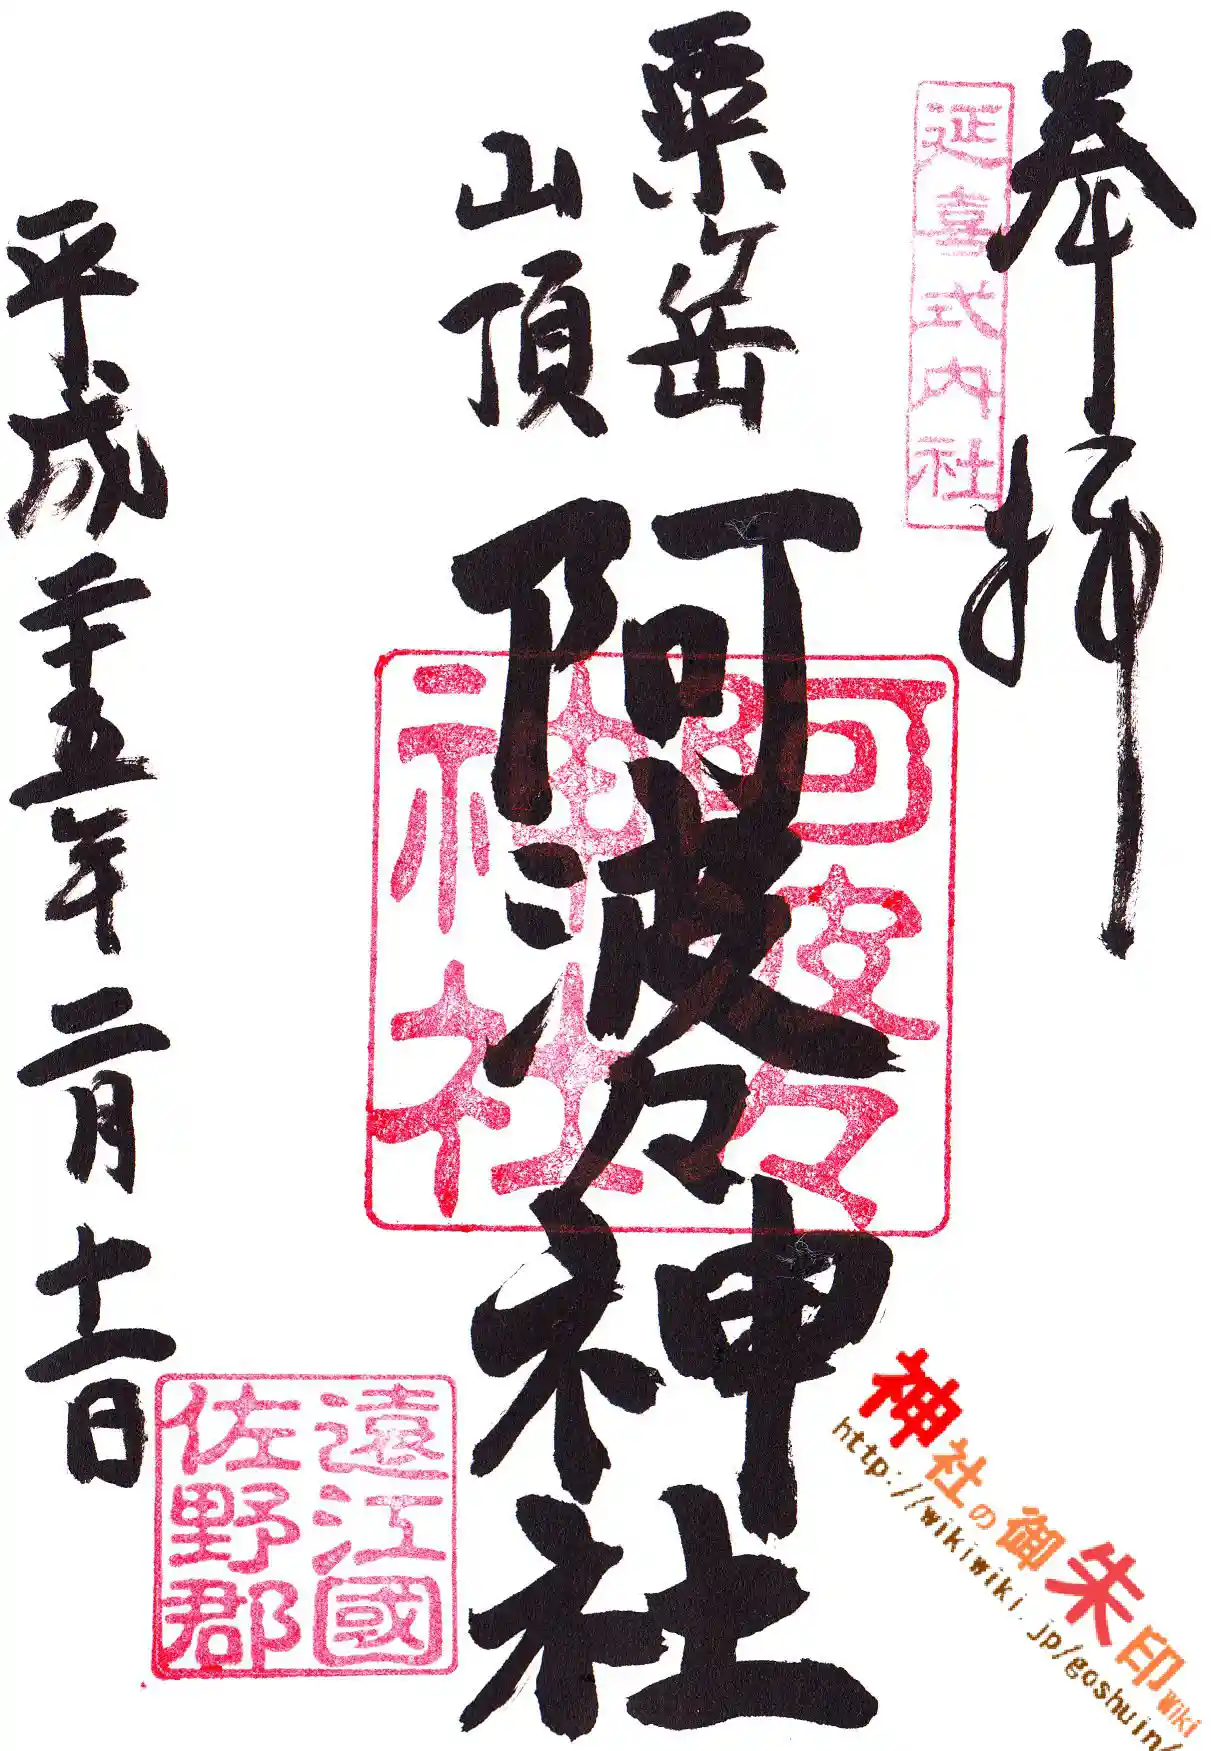 奉拝
延喜式内社
粟岳
山頂
阿波々神社
阿波々
神社
平成二十五年二月十一日
遠江國
佐野郡
神社の御朱印wiki
http://wikiwiki.jp/goshuin/